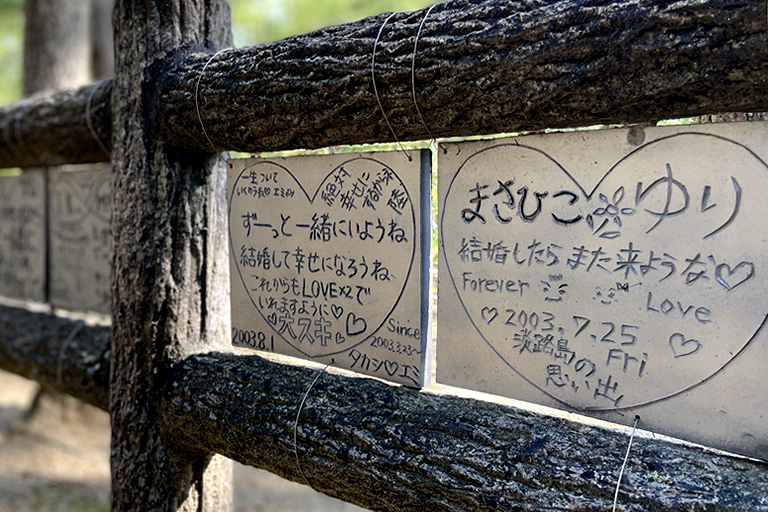 一生ついて
いくからね♡ エミ
絶対
幸せに
するからネ
ずーっと一緒にいようね
結婚して幸せになろうね
これからもLOVE×2で
いれますように♡
♡大スキ♡
2003.8.1
Since
2003.3.23~
タカシ♡エミ
まさひこ ゆり
結婚したら また来ような♡
Forever Love
♡2003.7.25
Fri ♡
淡路島の
思い出